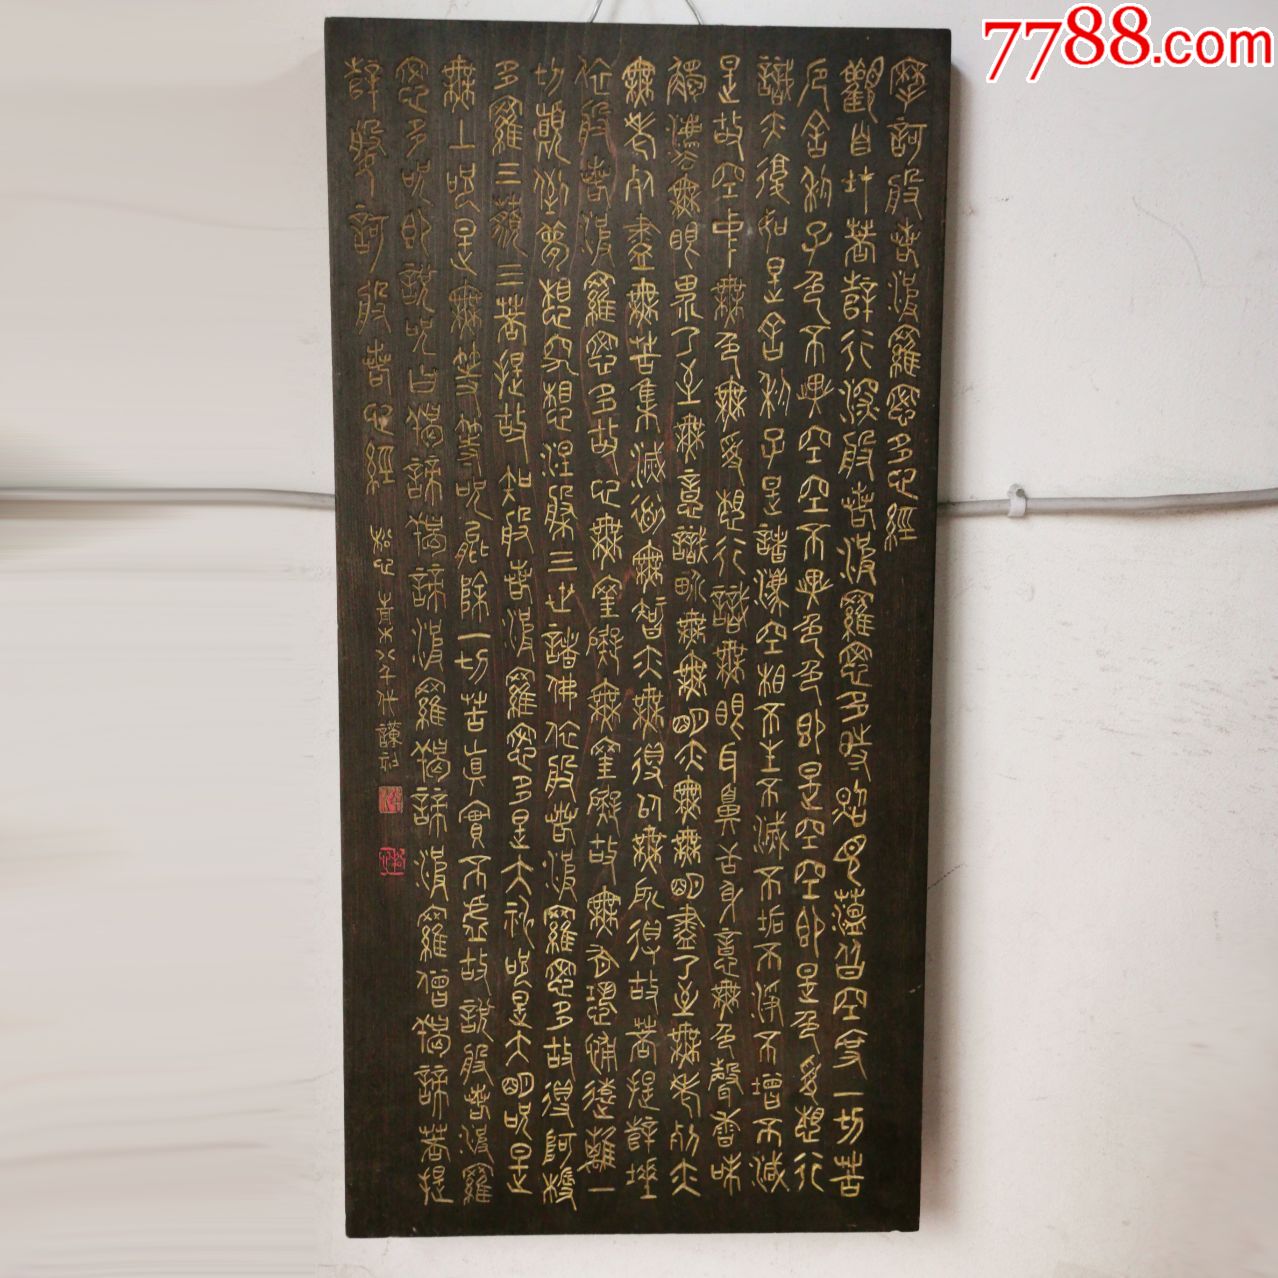 7788.com
摩訶般若波羅蜜多心經
觀自在菩薩行深般若波羅蜜多時照見蘊皆空度一切苦
厄舍利子色不異空空不異色色即是空空即是色受想行
識亦復如是舍利子是諸法空相不生不滅不垢不淨不增不減
是故空中無色無受想行識無眼耳鼻舌身意無色聲香味
觸法無眼界乃至無意識界無無明亦無無明盡乃至無老死亦
無老死盡無苦集滅道無智亦無得以無所得故菩提薩埵
依般若波羅蜜多故心無罣礙無罣礙故無有恐怖遠離一
切顛倒夢想究竟涅槃三世諸佛依般若波羅蜜多故得阿耨
多羅三藐三菩提故知般若波羅蜜多是大神咒是大明咒是
無上咒是無等等咒能除一切苦真實不虛故說般若波羅
蜜多咒即說咒曰揭諦揭諦波羅揭諦波羅僧揭諦菩提
薩婆訶般若心經